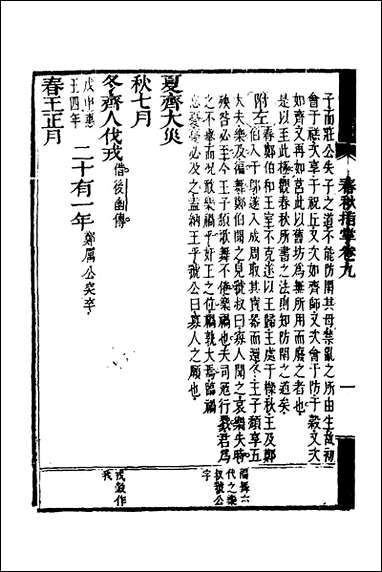 春秋指掌卷九
一
子而莊公失子之道不能防閑其母禁亂之所由生故初
會于禚次享于祝丘又次如齊師又次會于防于穀又次
如齊又再如莒此以舊坊為無所用而廢之者也
是以至此極觀春秋所書之法則知防閑之道矣
附左 春鄭伯和王室不克遂以王歸王處于櫟秋王及鄭
伯入于鄔遂入成周取其寶器而還冬王子頹享五
大夫樂及徧舞鄭伯聞之見虢叔曰寡人聞之哀樂失時
殃咎必至今王子頹歌舞不倦樂禍也夫司寇行戮君為
之不舉而況敢樂禍乎奸王之位禍孰大焉臨禍
忘憂憂必及之盍納王乎虢公曰寡人之願也
夏齊大災
秋七月
冬齊人伐戎
戊申惠王四年
二十有一年
鄭厲公突卒
春王正月
徧舞六
代之樂
叔虢公
字
戎穀作
我